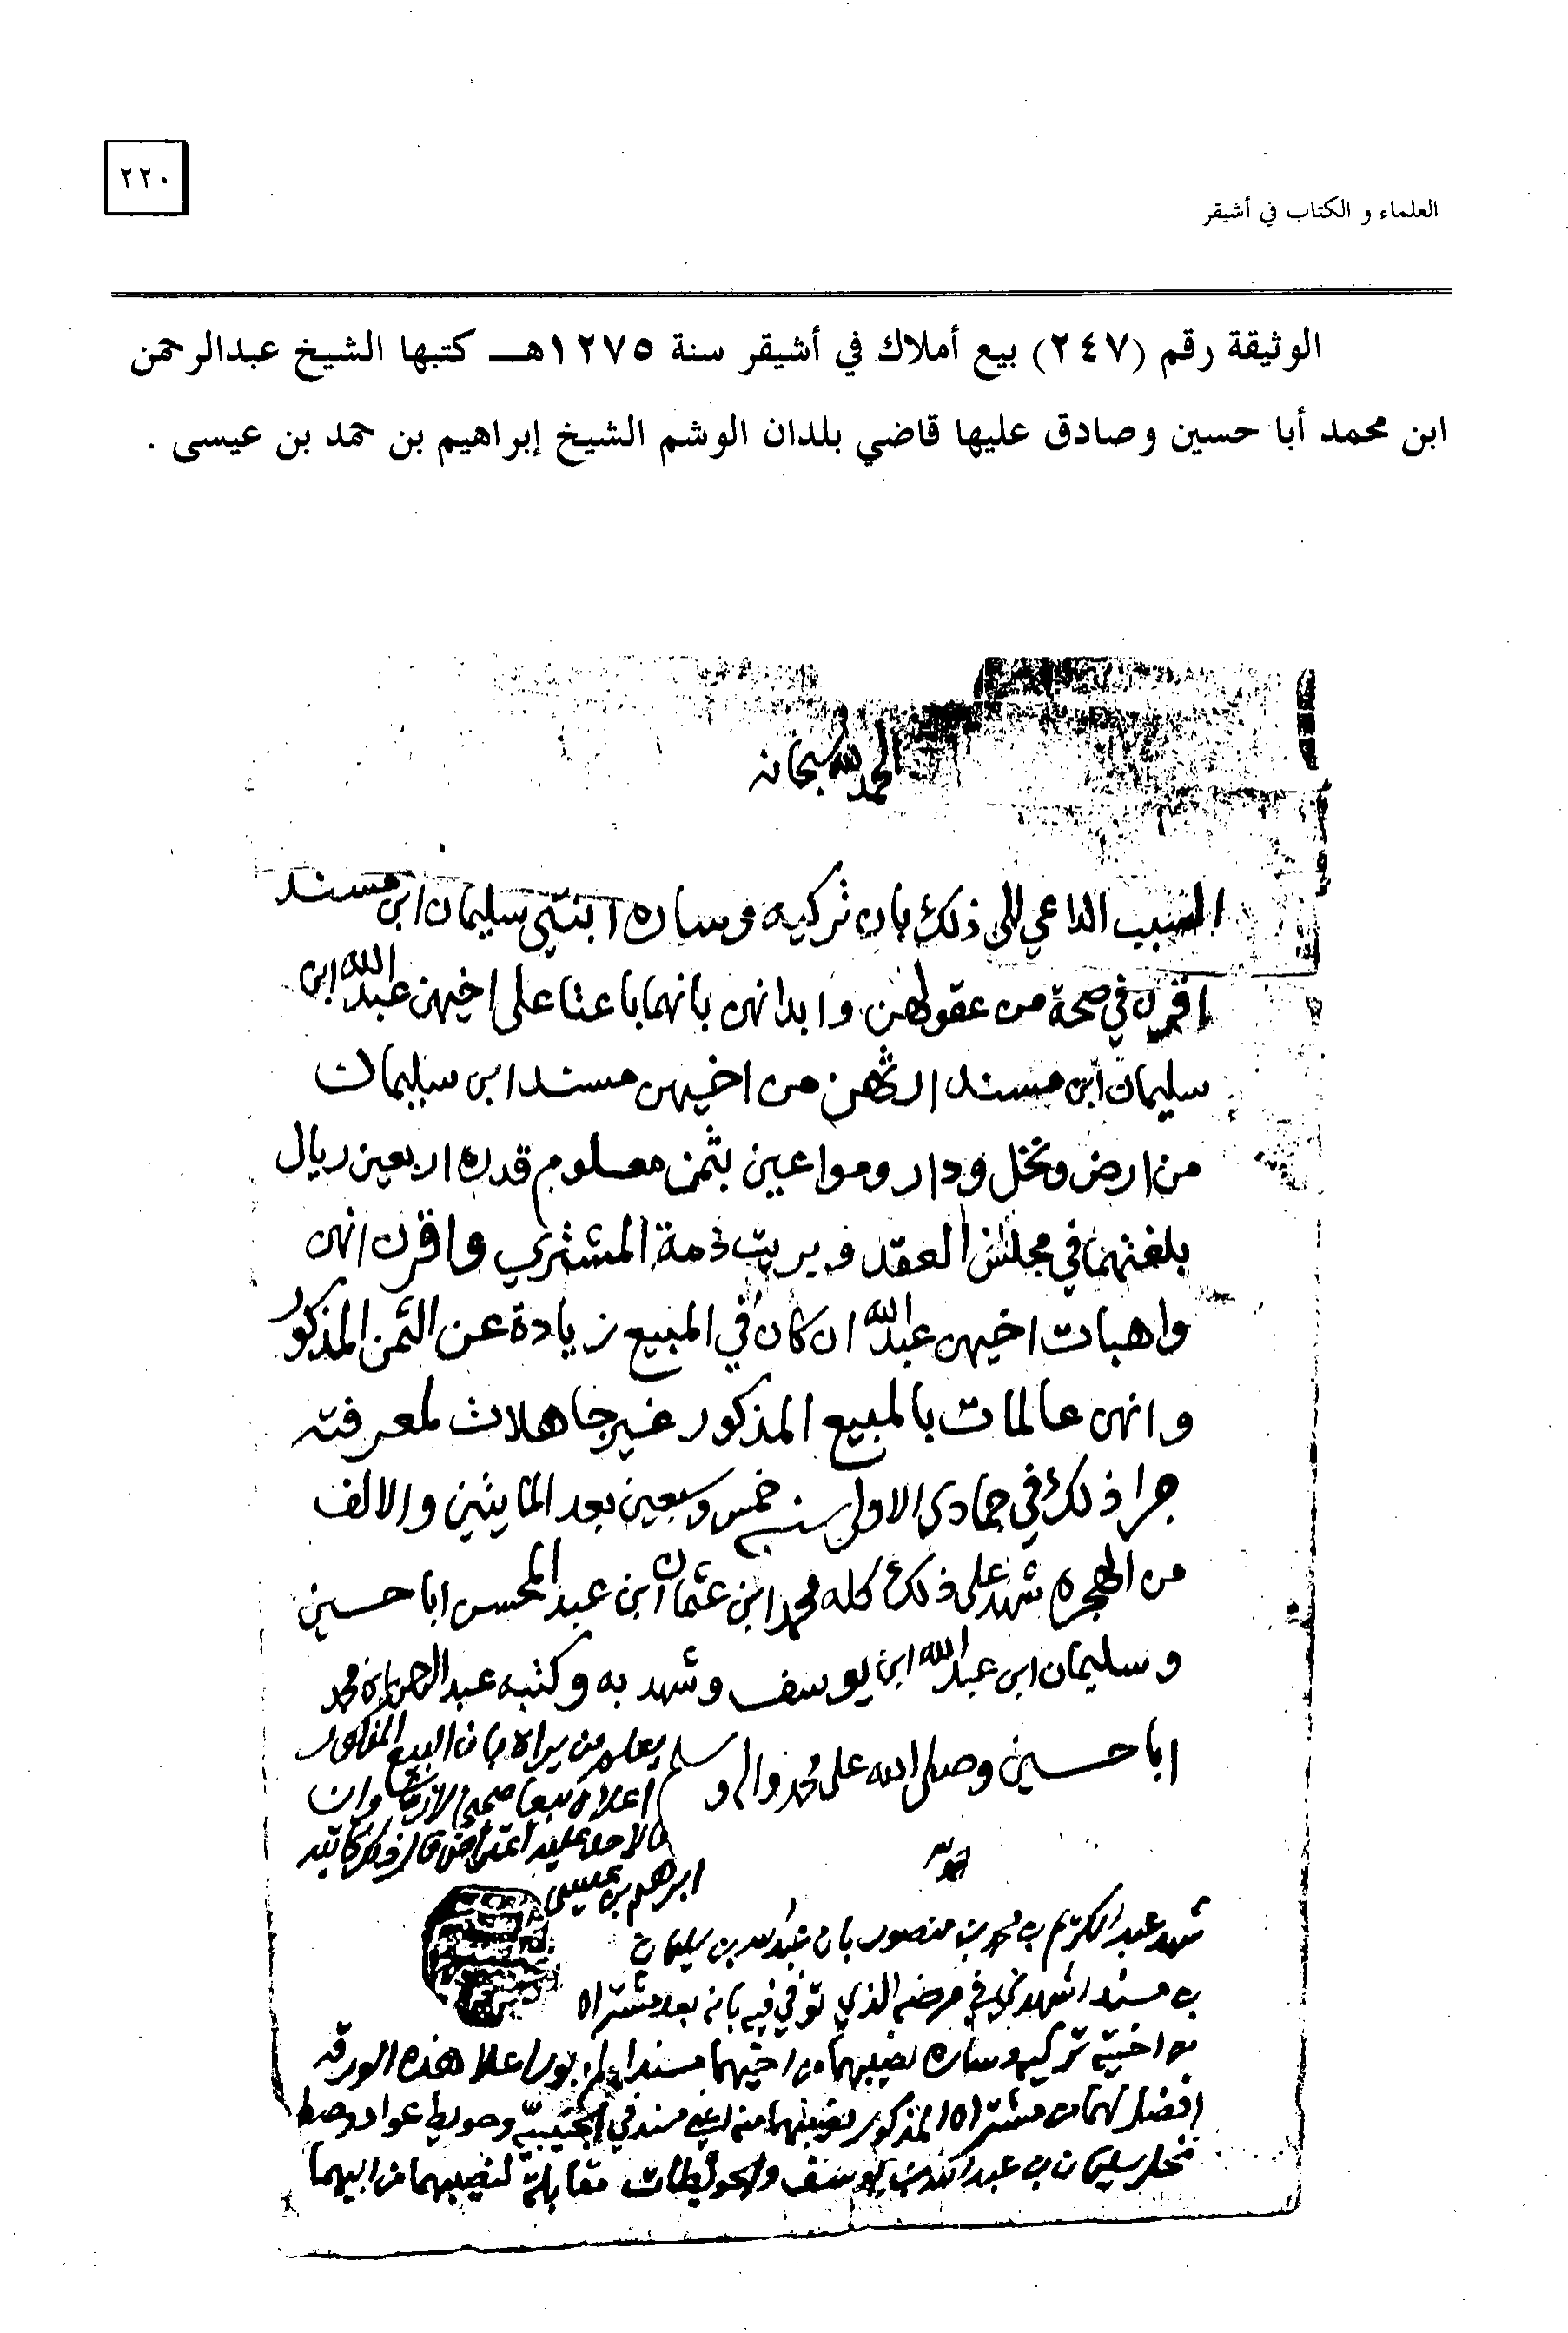 ٢٢٠
العلماء و الكتاب في أشيقر
الوثيقة رقم (٢٤٧) بيع أملاك في أشيقر سنة ١٢٧٥هـ كتبها الشيخ عبدالرحمن
ابن محمد أبا حسين وصادق عليها قاضي بلدان الوشم الشيخ إبراهيم بن حمد بن عيسى .
الحمد لله سبحانه
السبب الداعي الى ذلك بان تركيه وساره ابنتي سليمان ابن مسند
اقرن في صحة من عقولهن وابدانهن بانهما باعتا على اخيهن عبدالله ابن
سليمان ابن مسند ارثهن من اخيهن مسند ابن سليمان
من ارض ونخل ودار ومواعين بثمن معلوم قدره اربعين ريال
بلغنهما في مجلس العقد وبريت ذمة المشتري واقرن انهن
واهبات اخيهن عبدالله ان كان في المبيع زيادة عن الثمن المذكور
وانهن عالمات بالمبيع المذكور غير جاهلات لمعرفته
جرا ذلك في جمادى الاولى سنة خمس وسبعين بعد المايتين والالف
من الهجره شهد على ذلك كله محمد ابن عثمان ابن عبدالمحسن اباحسين
وسليمان ابن عبدالله ابن يوسف وشهد به وكتبه عبدالرحمن ابن محمد
اباحسين وصلى الله على محمد واله وسلم
يعلم من يراه بان البيع المذكور
اعلاه بيعا صحيحا لازما وان
لاحد عليه اعتراض قال ذلك كاتبه
ابراهيم بن عيسى
شهد عبدالكريم بن محمد بن منصور بان عبدالله بن سليمان
بن مسند اشهدني في مرضه الذي توفي فيه بانه بعد مشتراه
من اختيه تركيه وساره نصيبهما من اخيهما مسند اعلا هذه الورقه
افضل لهما من مشتراه المذكور نصيبهما من مسند في وحويط عواد
نخل سليمان بن عبدالله بن يوسف والحويطات مقابلة لنصيبهما من ابيهما